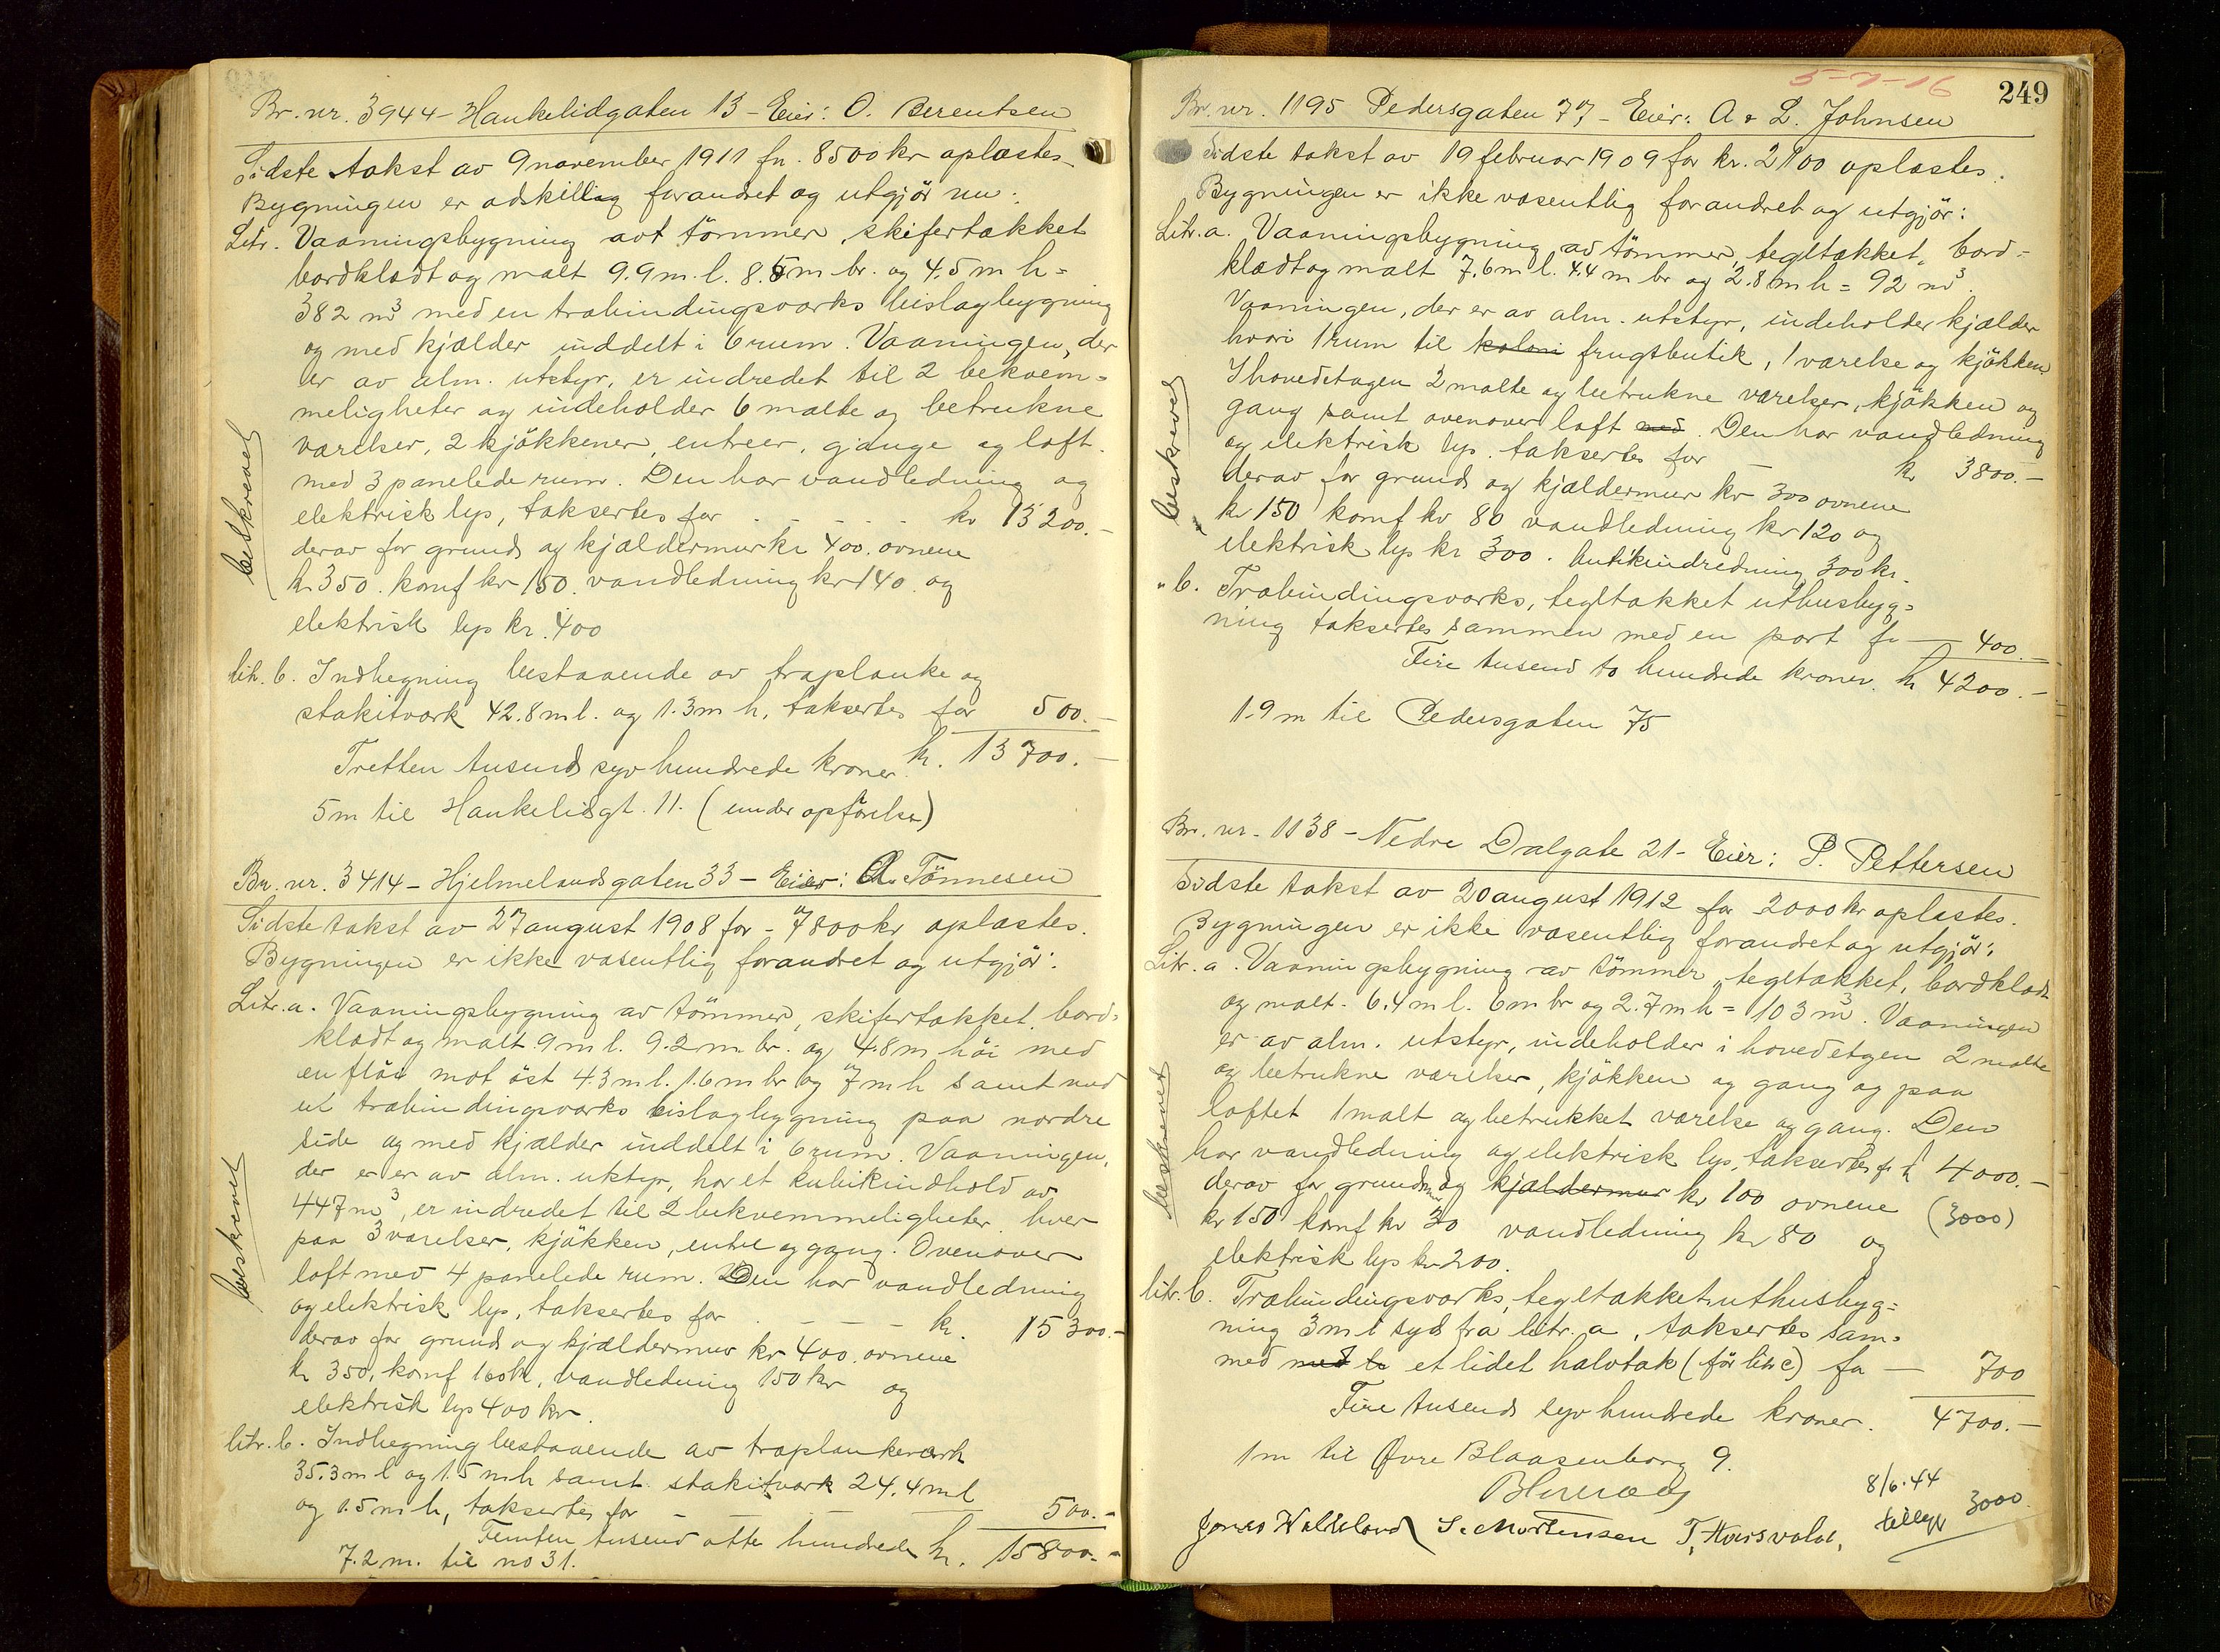 Br. nr. 3944 - Haukelidgaten 13 - Eier: O. Berentsen
Sidste takst av 9 november 1911 fn. 8500 kr oplæstes
Bygningen er adskillig forandret og utgjör nu:
Litr. Vaaningsbygning avt tömmer, skifertækket
bordklædt og malt 9.9 m. l. 8.5 m br. og 4.5 m h =
382 m³ med en træbindingsværks bislagbygning
og med kjælder inddelt i 6 rum. Vaaningen, der
er av alm. utstyr, er indredet til 2 bekvem=
meligheter og indeholder 6 malte og betrukne
værelser, 2 kjökkener, entreer, gange og loft
med 3 panelede rum. Den har vandledning og
elektrisk lys, taksertes for . - - - . kr 13200.-
derav for grund og kjældermur kr 400. ovnene
kr 350. komf kr 150. vandledning kr 140. og
elektrisk lys kr. 400
litr. b. Indhegning bestaaende av træplanke og
stakitværk 42.8 m l. og 1.3 m h. taksertes for 500.-
Tretten tusend syv hundrede kroner kr. 13700.-
5 m til Haukelidgt. 11. (under opförelse)
beskrevet
Br. nr. 3414 - Hjelmelandsgaten 33 - Eier: A. Tönnesen
Sidste takst av 27 august 1908 for - 7800 kr oplæstes.
Bygningen er ikke væsentlig forandret og utgjör:
Litr. a. Vaaningsbygning av tömmer, skifertækket, bord=
klædt og malt 9 m l. 9.2 m br. og 4.8 m höi med
en flöi mot öst 4.3 m l. 1.6 m br og 7 m h samt med
et træbindingsværks bislagbygning paa nordre
side og med kjælder inddelt i 6 rum. Vaaningen,
der er er av alm. utstyr, har et kubikindhold av
447 m³, er indredet til 2 bekvemmeligheter hver
paa 3 værelser, kjökken, entre og gang. Ovenover
loft med 4 panelede rum. Den har vandledning
og elektrisk lys, taksertes for . - - - kr. 15300.-
derav for grund og kjældermur kr 400. ovnene
kr 350, komf 160 kr, vandledning 150 kr og
elektrisk lys 400 kr.
litr. b. Indhegning bestaaende av træplankeverk
35.3 m l og 1.5 m h samt stakitværk 24.4 m l
og 1.5 m h, taksertes for - - - 500.-
Femten tusend otte hundrede kr. 15800.-
7.2 m. til no 31.
beskrevet
5-7-16
249
Br. nr. 1195 Pedersgaten 77 - Eier: A & L. Johnsen
Sidste takst av 19 februar 1909 for kr. 2100 oplæstes.
Bygningen er ikke væsentlig forandret og utgjör:
Litr. a. Vaaningsbygning av tömmer, tegltækket, bord=
klædt og malt 7.6 m l. 4.4 m br og 2.8 m h = 92 m³.
Vaaningen, der er av alm. utstyr, indeholder kjælder
hvori 1 rum til koloni frugtbutik, 1 værelse og kjökken.
I hovedetagen 2 malte og betrukne værelser, kjökken og
gang samt ovenover loft med. Den har vandledning
og elektrisk lys. taksertes for - kr 3800.-
derav for grund og kjældermur kr 300 ovnene
kr 150 komf kr 80 vandledning kr 120 og
elektrisk lys kr 300. butikindredning 300 kr.
" b. Træbindingsværks, tegltækket uthusbyg=
ning taksertes sammen med en port fr - 400.-
Fire tusend to hundrede kroner. kr 4200.-
1.9 m til Pedersgaten 75
beskrevet
Br. nr. 1138 - Nedre Dalgate 21 - Eier: P. Pettersen
Sidste takst av 20 august 1912 for 2000 kr oplæstes.
Bygningen er ikke væsentlig forandret og utgjör:
Litr. a. Vaaningsbygning av tömmer, tegltækket, bordklædt
og malt. 6.4 m l. 6 m br og 2.7 m h = 103 m³. Vaaningen
er av alm. utstyr, indeholder i hovedetgen 2 malte
og betrukne værelser, kjökken og gang og paa
loftet 1 malt og betrukket værelse og gang. Den
har vandledning og elektrisk lys, taksertes fr kr 4000.-
derav for grundmur og kjældermur kr 100 ovnene (3000)
kr 150 komf kr 30 vandledning kr 80 og
elektrisk lys kr 200.
litr. b. Træbindingsværks, tegltækket uthusbyg=
ning 3 m l syd fra litr. a, taksertes sam=
med med le et lidet halvtak (för litr c) for - 700
Fire tusend syv hundrede kroner. 4700.-
1 m til Övre Blaasenborg 9.
beskrevet
8/6.44
tillegg 3000
Jonas S. Mortensen